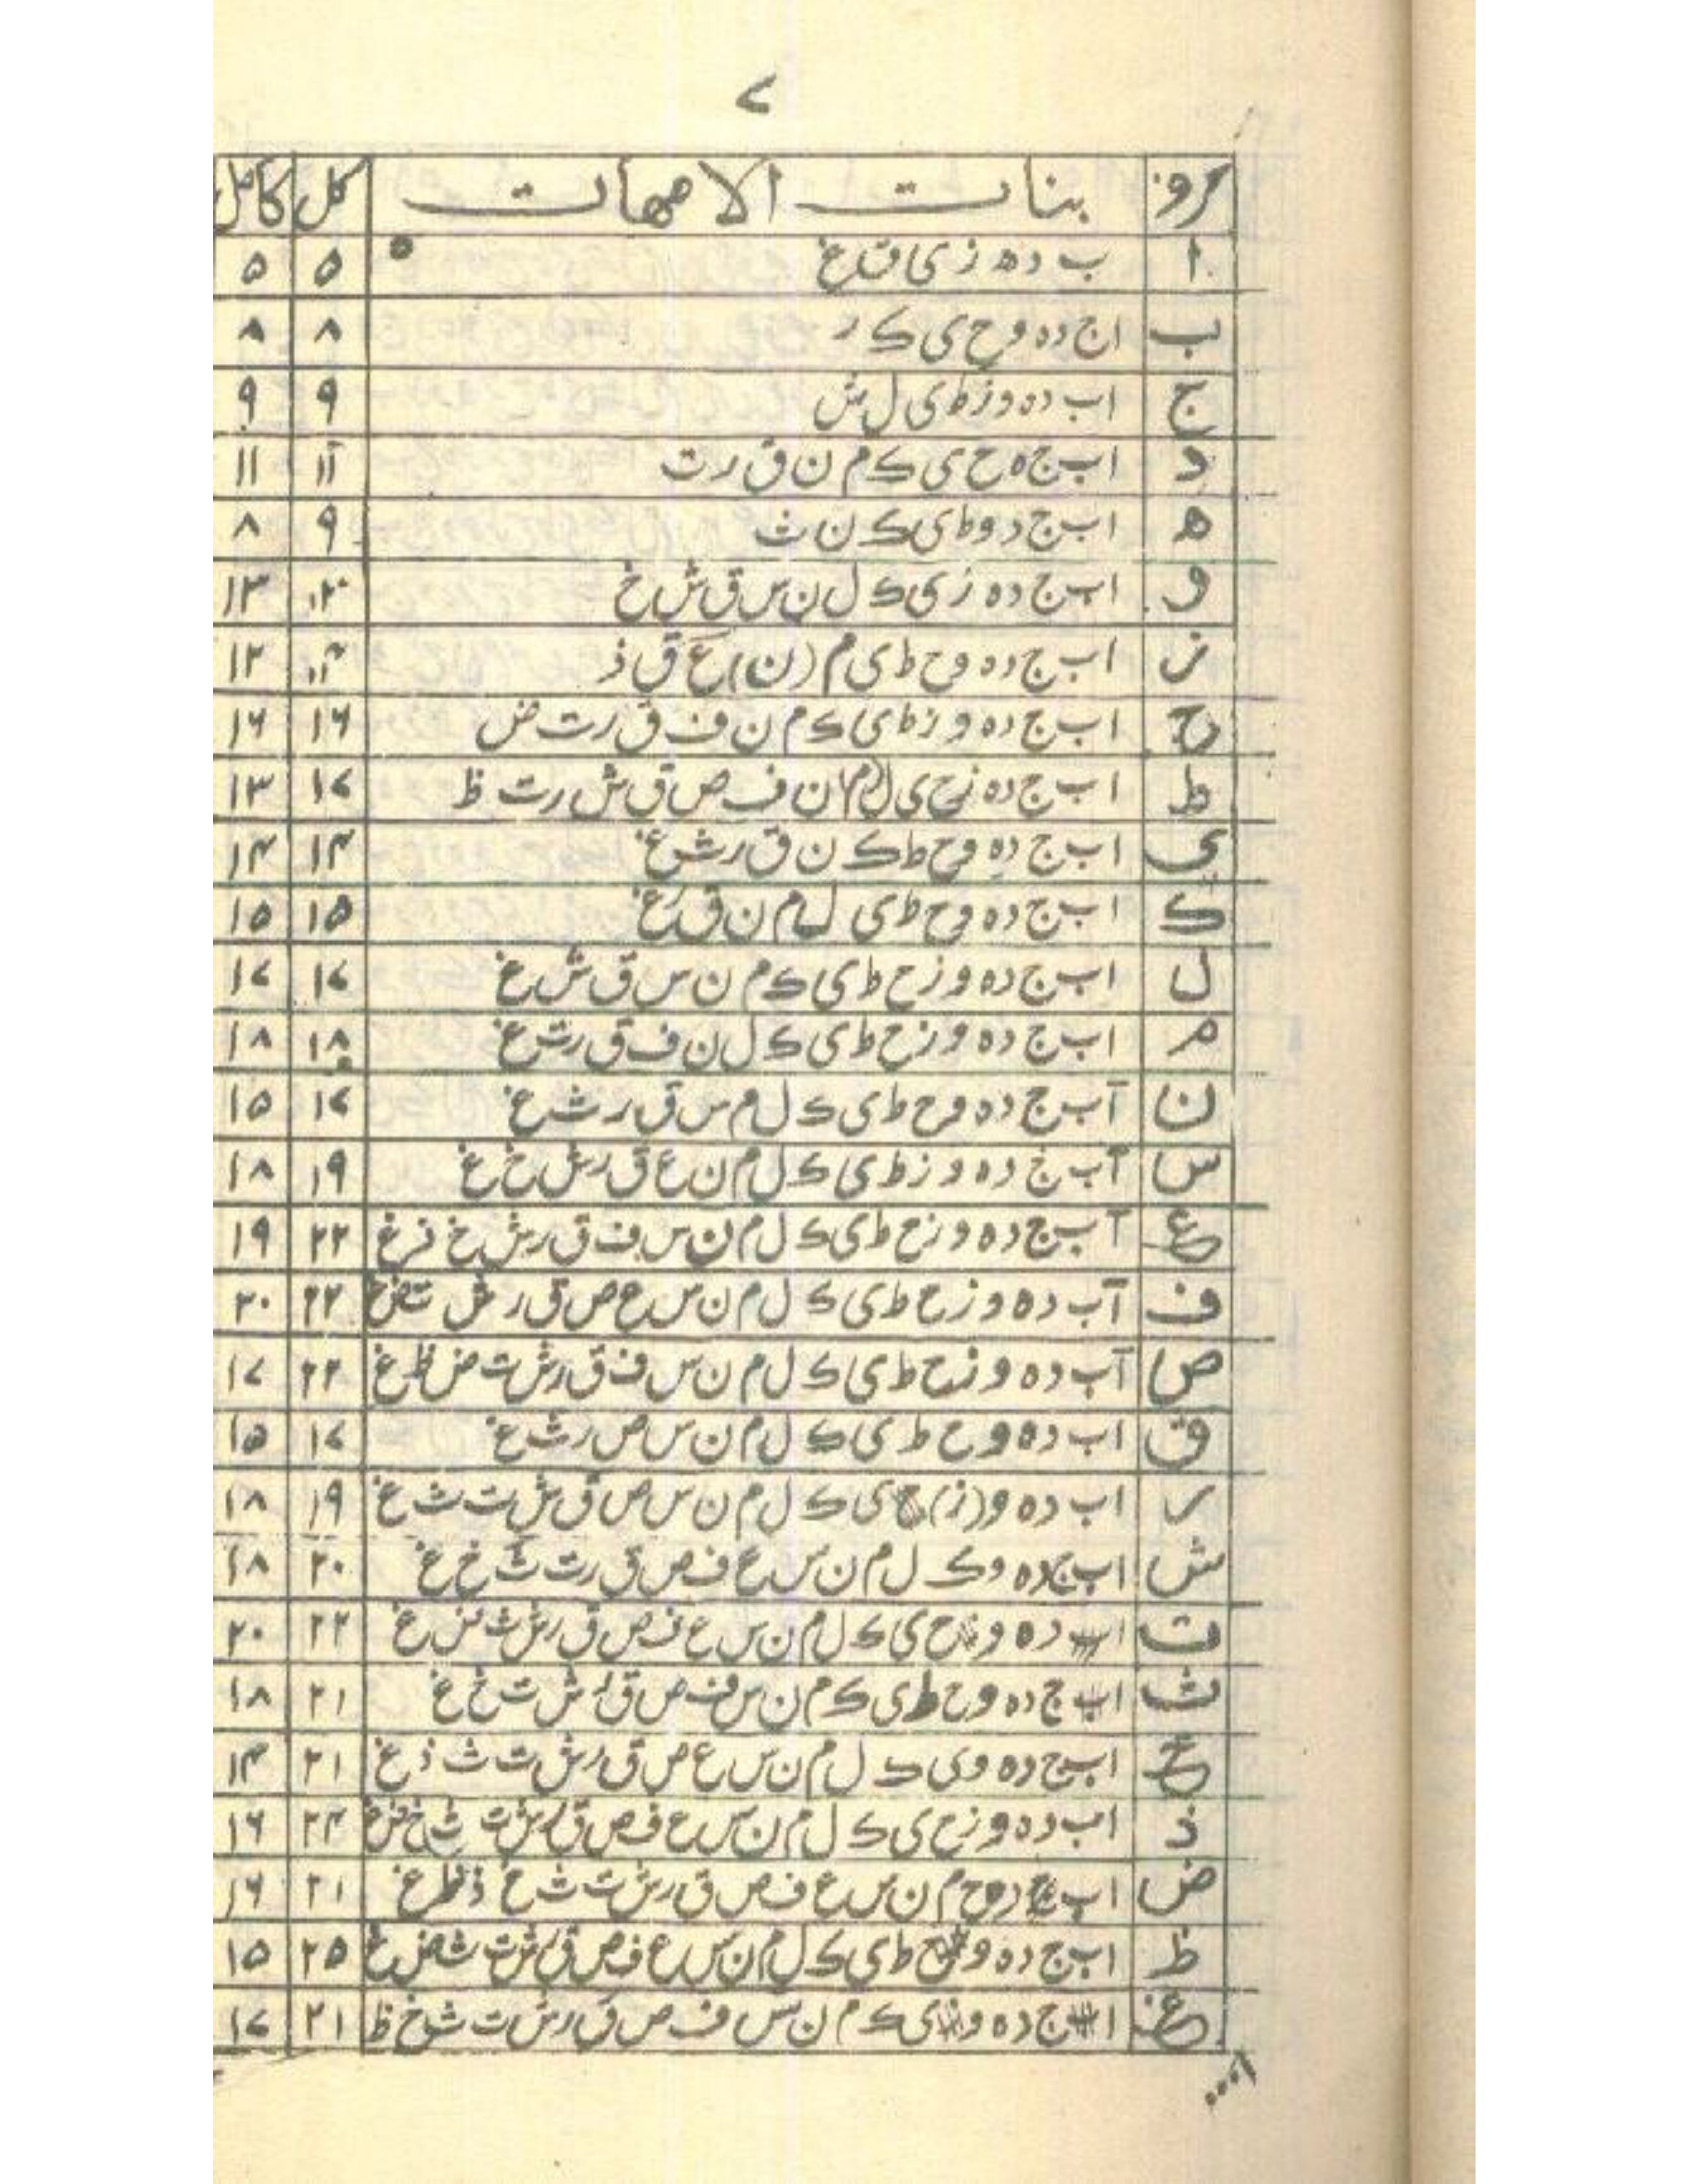 ۷
حروف بنات الامهات کل کامل
ا ب د ه ز ی ق غ ۵ ۵
ب ا ج د ه و ح ی ک ر ۸ ۸
ج ا ب د ه و ز ط ی ل ش ۹ ۹
د ا ب ج ه ح ی ک م ن ق ر ت ۱۱ ۱۱
ه ا ب ج د و ط ی ک ن ث ۹ ۸
و ا ب ج د ه ز ی ک ل ن س ق ش خ ۱۳
ز ا ب ج د ه و ح ط ی م (ن) ع ق ذ ۱۲
ح ا ب ج د ه و ز ط ی ک م ن ف ق ر ت ض ۱۶ ۱۶
ط ا ب ج د ه ز ح ی ل م ن ف ص ق ش ر ت ظ ۱۷ ۱۳
ی ا ب ج د ه و ح ط ک ن ق ر ث غ ۱۴ ۱۴
ک ا ب ج د ه و ح ط ی ل م ن ق ر غ ۱۵ ۱۵
ل ا ب ج د ه و ز ح ط ی ک م ن س ق ش غ ۱۷ ۱۷
م ا ب ج د ه و ز ح ط ی ک ل ن ف ق ر ت غ ۱۸ ۱۸
ن ا ب ج د ه و ح ط ی ک ل م س ق ر ث غ ۱۷ ۱۵
س ا ب ج د ه و ز ط ی ک ل م ن ع ق ر ش خ غ ۱۹ ۱۸
ع ا ب ج د ه و ز ح ط ی ک ل م ن س ف ق ر ش خ ذ غ ۲۲ ۱۹
ف ا ب د ه و ز ح ط ی ک ل م ن س ع ص ق ر ش ت ض غ ۲۲ ۲۰
ص ا ب د ه و ز ح ط ی ک ل م ن س ف ق ر ش ت ض ظ غ ۲۲ ۱۷
ق ا ب د ه و ح ط ی ک ل م ن س ص ر ث غ ۱۷ ۱۵
ر ا ب د ه و (ز) ح ی ک ل م ن س ص ق ش ت ث غ ۱۹ ۱۸
ش ا ب ج د ه و ک ل م ن س ع ف ص ق ر ت ث خ غ ۲۰ ۱۸
ت ا د ه و ح ی ک ل م ن س ع ف ص ق ر ش ث ض غ ۲۲ ۲۰
ث ا ب ج د ه و ح ط ی ک م ن س ف ص ق ر ش ت خ غ ۲۱ ۱۸
خ ا ب ج د ه و ی ک ل م ن س ع ص ق ر ش ت ث ذ غ ۲۱ ۱۴
ذ ا ب د ه و ز ح ی ک ل م ن س ع ف ص ق ر ش ت ث خ ض غ ۲۴ ۱۶
ض ا ب ج د و ح م ن س ع ف ص ق ر ش ت ث خ ذ ظ غ ۲۱ ۱۶
ظ ا ب ج د ه و ح ط ی ک ل م ن س ع ف ص ق ر ش ت ث ض غ ۲۵ ۱۵
غ ا ج د ه و ی ک م ن س ف ص ق ر ش ت ث خ ظ ۲۱ ۱۷
۱۰۰۰